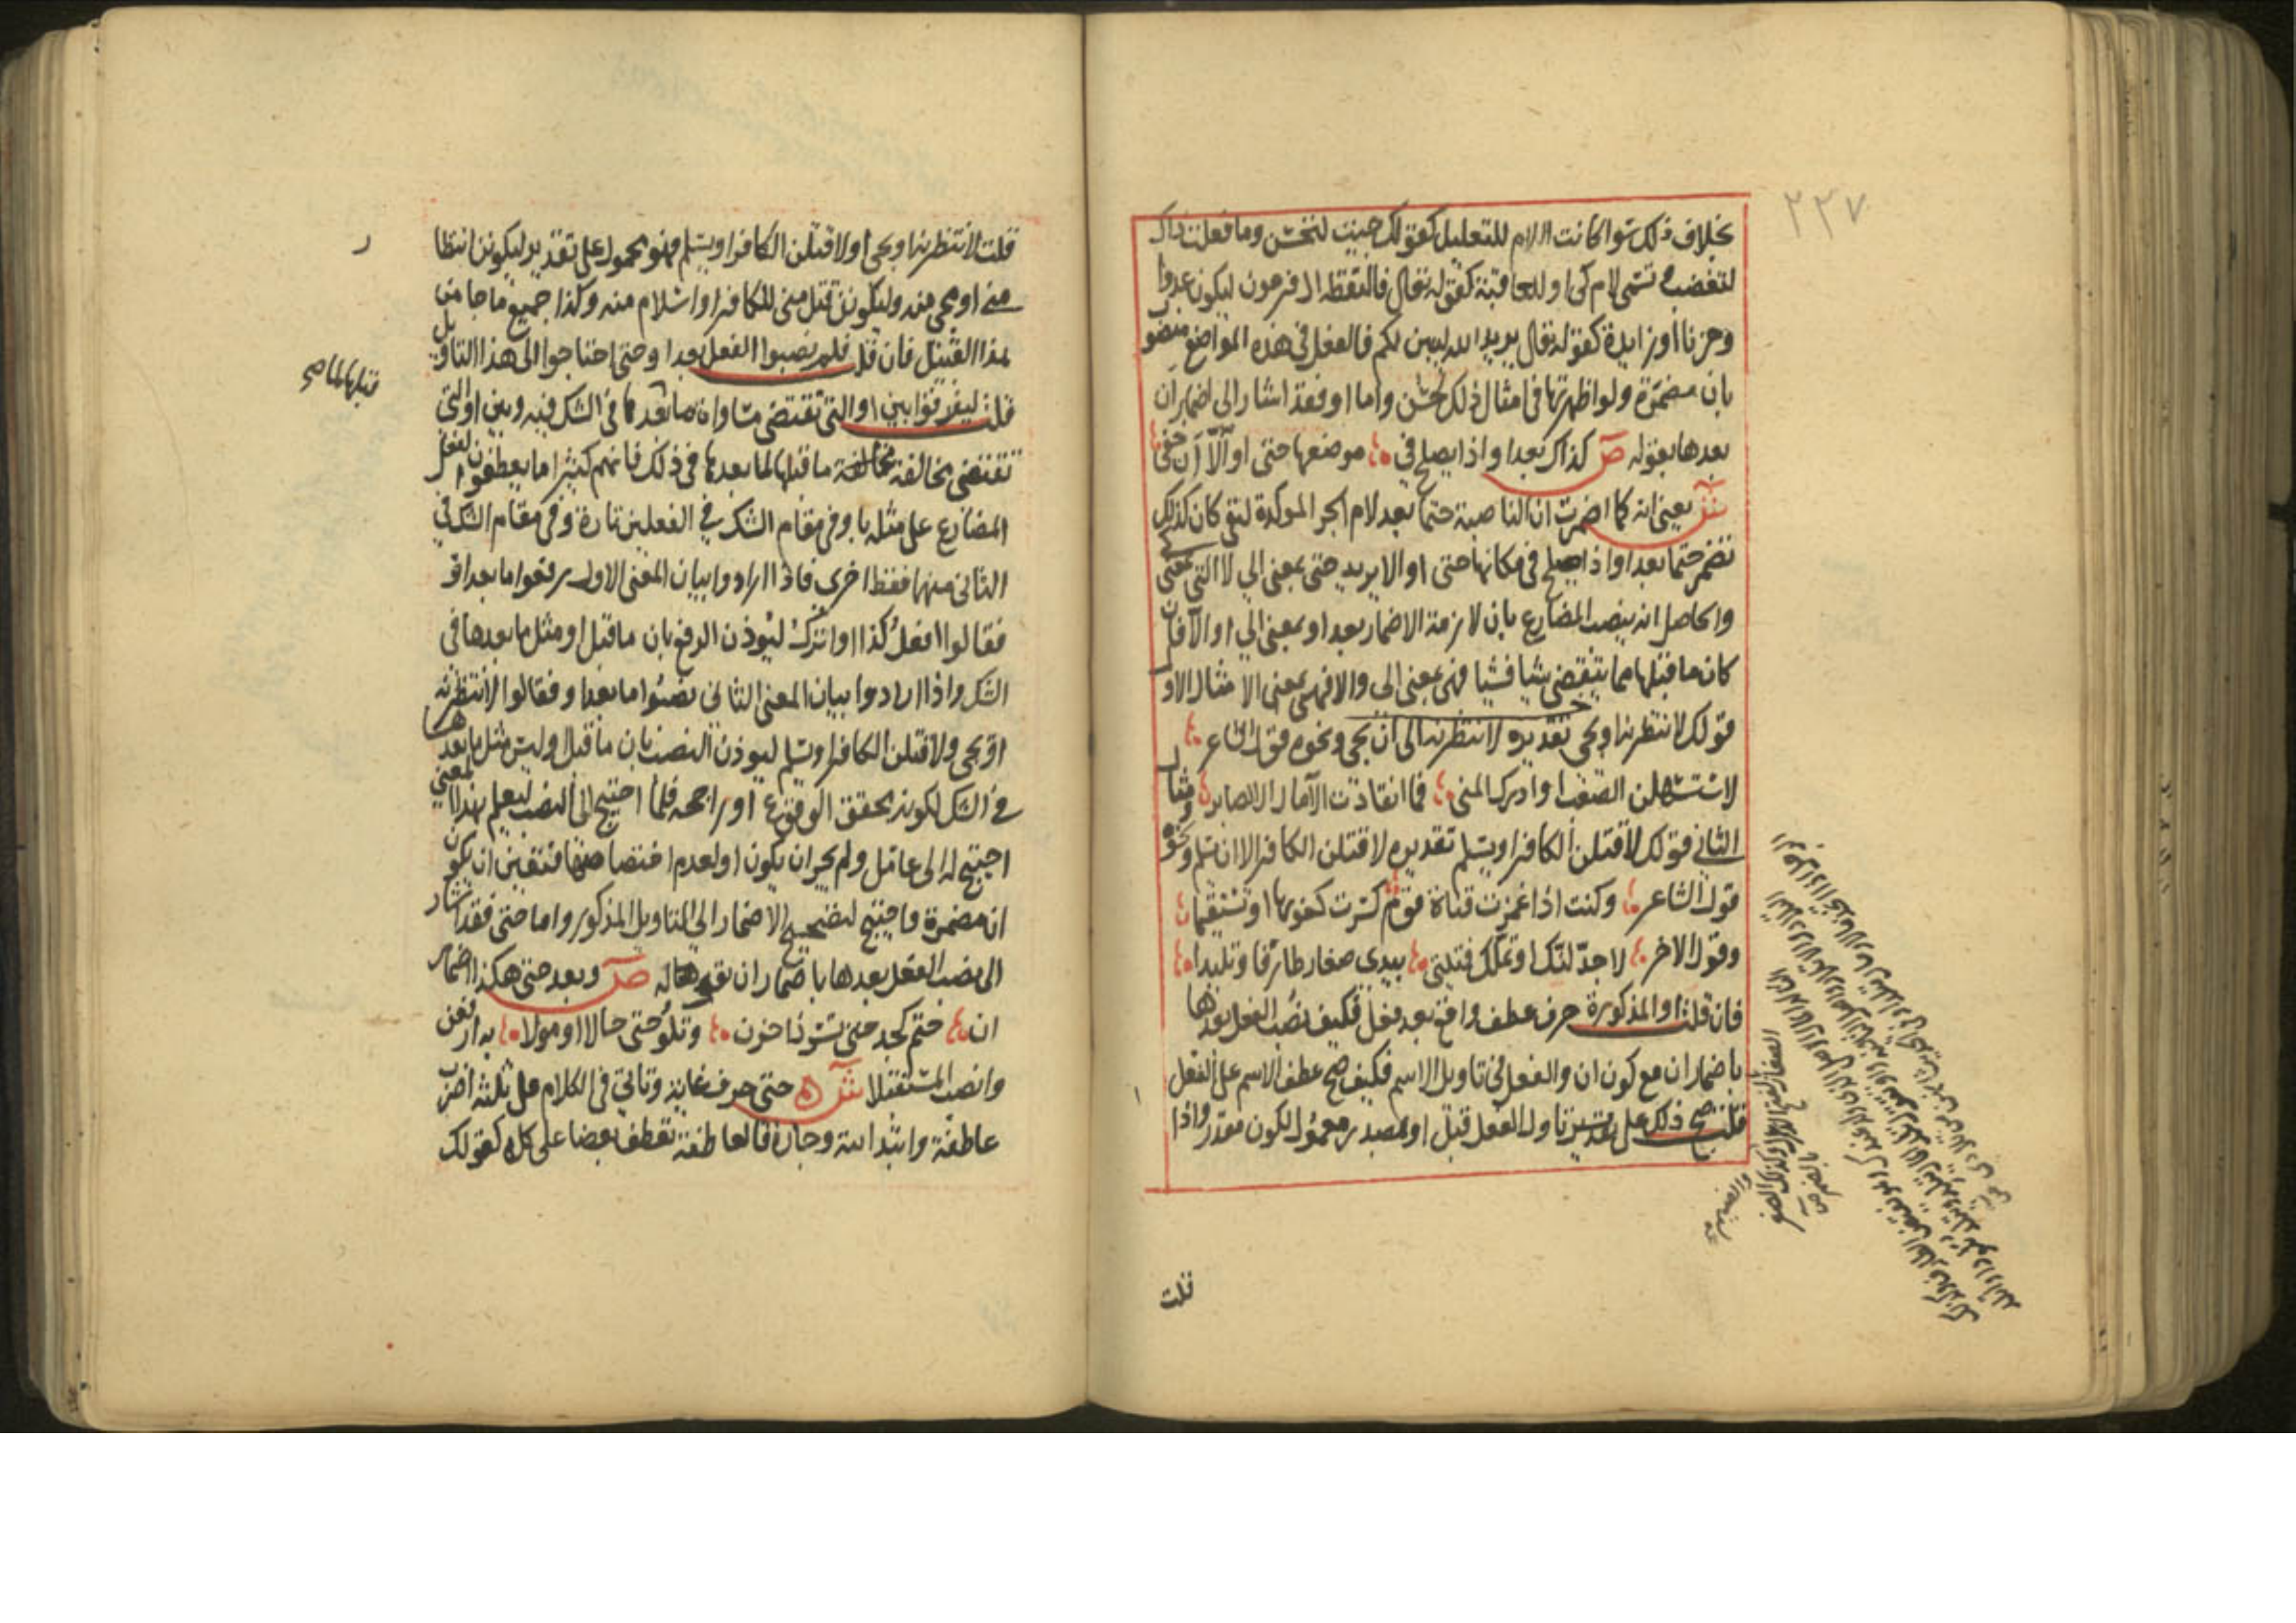 ٢٢٧
بخلاف ذلك سوا كانت اللام للتعليل كقولك جيت لتحسن وما فعلت ذاك
لتغضب وتسمى لام كى او للعاقبة كقوله تعالى فالتقطه ال فرعون ليكون لهم عدوا
وحزنا او زايدة كقوله تعالى يريد الله ليبين لكم فالفعل فى هذه المواضع منصوب
بان مضمرة ولو اظهرتها فى امثال ذلك لحسن واما او فقد اشار الى اضمار ان
بعدها بقوله ص كذاك بعد او اذا يصلح فى موضعها حتى او الّا أن خفى
ش يعنى انه كما اضمرت ان الناصبة حتما بعد لام الجر الموكدة لنفى كان كذلك
تضمر حتما بعد او اذا صلح فى مكانها حتى او الا يريد حتى بمعنى الى لا التى بمعنى كى
والحاصل انه ينصب المضارع بان لازمة الاضمار بعد او بمعنى الى او الا فان
كان ما قبلها مما ينقضى شيا فشيا فهى بمعنى الى والا فهى بمعنى الا مثال الاول
قولك لانتظرنه او يجى تقديره لانتظرنه الى ان يجى ونحوه قول الشاعر
لاستسهلن الصعب او ادرك المنى فما انقادت الآمال الا لصابر ومثال
الثانى قولك لاقتلن الكافر او يسلم تقديره لاقتلن الكافر الا ان يسلم ونحوه
قول الشاعر وكنت اذا غمزت قناة قوم كسرت كعوبها او تستقيما
وقول الاخر لاجدّلنّك او تملّك فتيتى بيدى صغار طارفا وتليدا
فان قلت او المذكورة حرف عطف واقع بعد فعل فكيف نصب الفعل بعدها
باضمار ان مع كون ان والفعل فى تاويل الاسم فكيف صح عطف الاسم على الفعل
قلت صح ذلك على تقدير تاول الفعل قبل او بمصدر معمول لكون مقدر واذا
قلت
قلت لانتظرنه او يجى او لاقتلن الكافر او يسلم فهو محمول على تقدير ليكونن انتظار
منى او مجى منه وليكونن قتل منى للكافر او اسلام منه وكذا جميع ما جا من
هذا القبيل فان قلت فلم نصبوا الفعل بعد او حتى احتاجوا الى هذا التاويل
قلت ليفرقوا بين او التى تقتضى مساواة ما بعدها فى الشك فيه وبين او التى
قبلها لما صح
تقتضى مخالفة ما قبلها لما بعدها فى ذلك فانهم كثيرا ما يعطفون الفعل
المضارع على مثله باو فى مقام الشك فى الفعلين تارة وفى مقام الشك فى
الثانى منهما فقط اخرى فاذا ارادوا بيان المعنى الاول رفعوا ما بعد او
فقالوا افعلُ كذا او اتركُ ليوذن الرفع بان ما قبل او مثل ما بعدها فى
الشك واذا ارادوا بيان المعنى الثانى نصبوا ما بعد او فقالوا لانتظرنه
او يجى ولاقتلن الكافر او يسلم ليوذن النصب بان ما قبل او ليس مثل ما بعدها
فى الشك لكونه محقق الوقوع او راجحه فلما احتيج الى النصب ليعلم بهذا المعنى
احتيج له الى عامل ولم يجز ان يكون او لعدم اختصاصها فتعين ان يكون
ان مضمرة واحتيج لتصحيح الاضمار الى التاويل المذكور واما حتى فقد اشار
الى نصب الفعل بعدها باضمار ان بقوله ص وبعد حتى هكذا اضمار
ان حتم كجد حتى تسرّ ذا حزن وتلو حتى حالا او مولا به ارفعن
وانصب المستقبلا ش حتى حرف غاية وتاتى فى الكلام على ثلثة اضرب
عاطفة وابتدائية وجارة فالعاطفة تعطف بعضا على كل كقولك